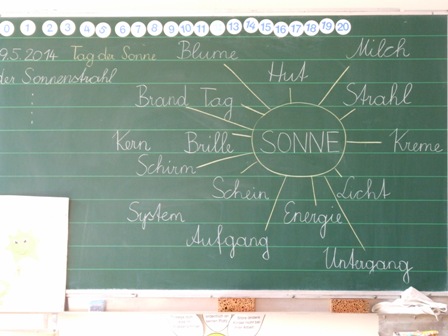 0 1 2 3 4 5 6 7 8 9 10 11 13 14 15 16 17 18 19 20
9.5.2014 Tag der Sonne
der Sonnenstrahl
Blume
Milch
Hut
Brand
Tag
Strahl
Kern
Brille
SONNE
Kreme
Schirm
Schein
Licht
System
Energie
Aufgang
Untergang